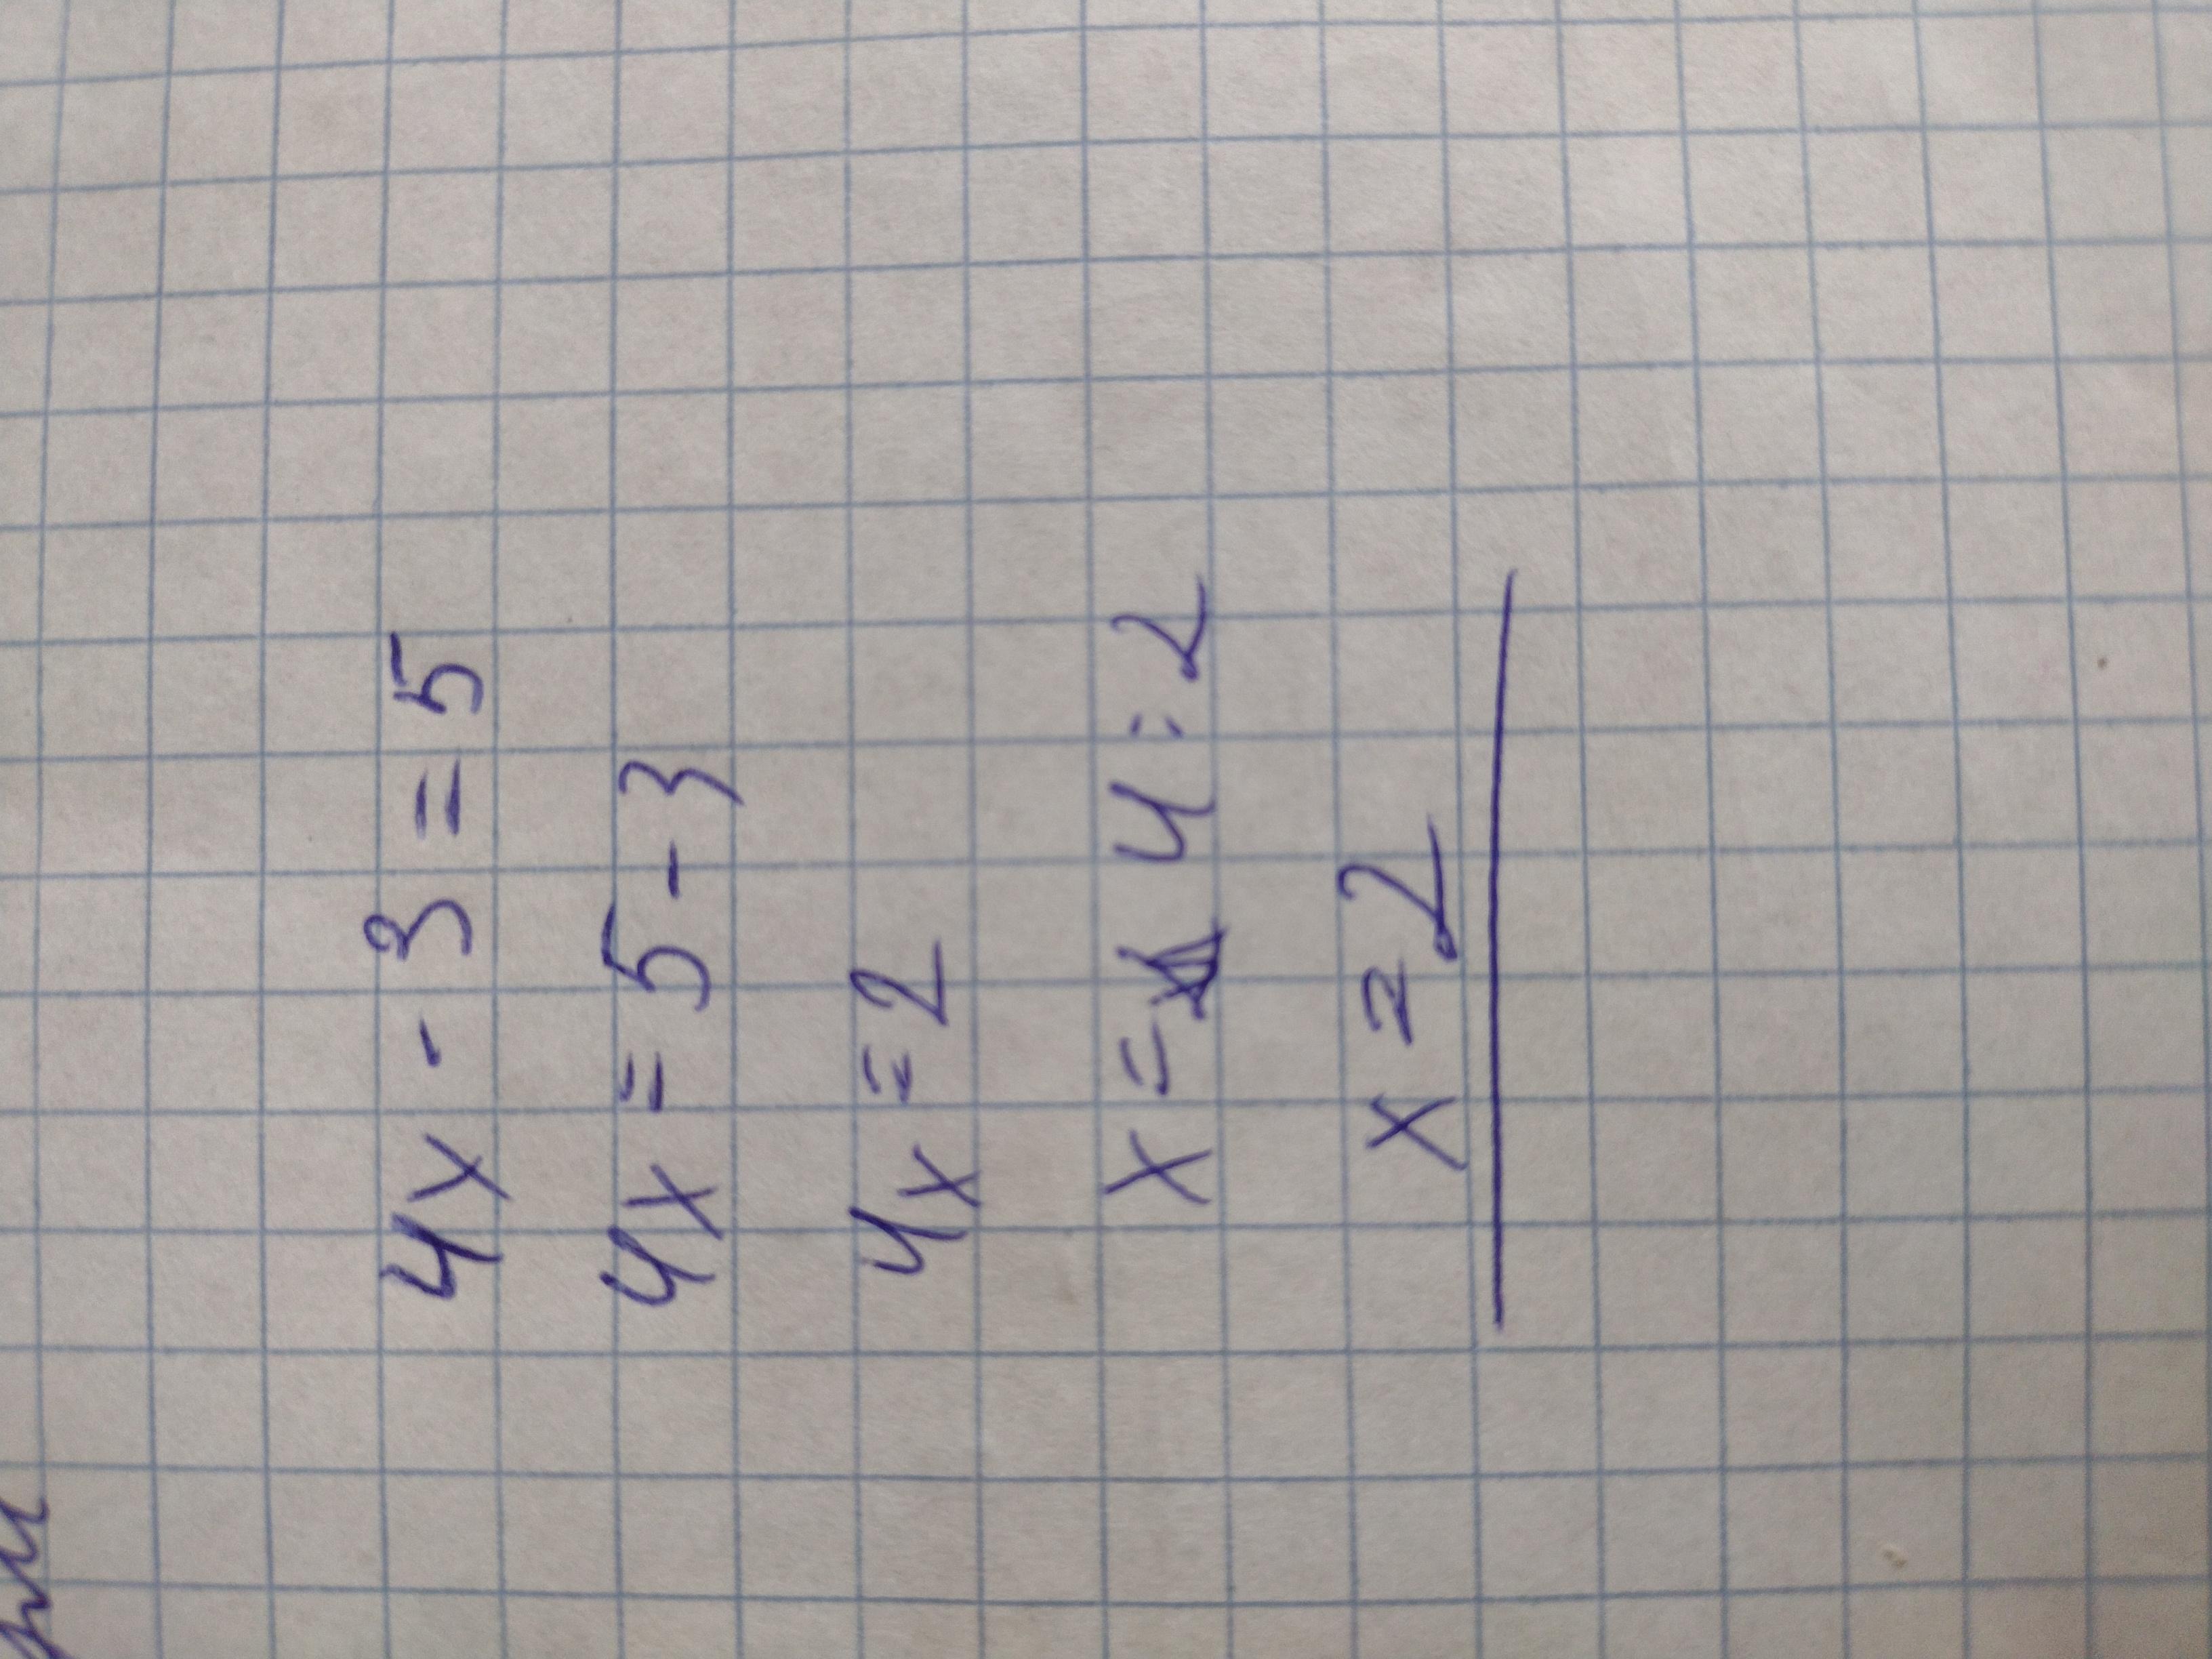 4x - 3 = 5
4x = 5 - 3
4x = 2
x = 4 : 2
x = 2